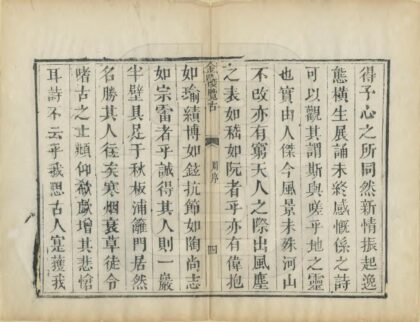 得予心之所同然新情振起逸
態橫生展誦未終感慨係之詩
可以觀其謂斯與嗟乎地之靈
也實由人傑今風景未殊河山
不改亦有窮天人之際出風塵
之表如嵇如阮者乎亦有偉抱
金陵覽古
周序
四
如瑜績博如鉉抗節如陶尚志
如宗雷者乎誠得其人則一巖
半壁具足千秋板浦籬門居然
名勝其人往矣寒烟衰草徒令
嗜古之士頫仰欷歔增其悲愴
耳詩不云乎我思古人寔獲我